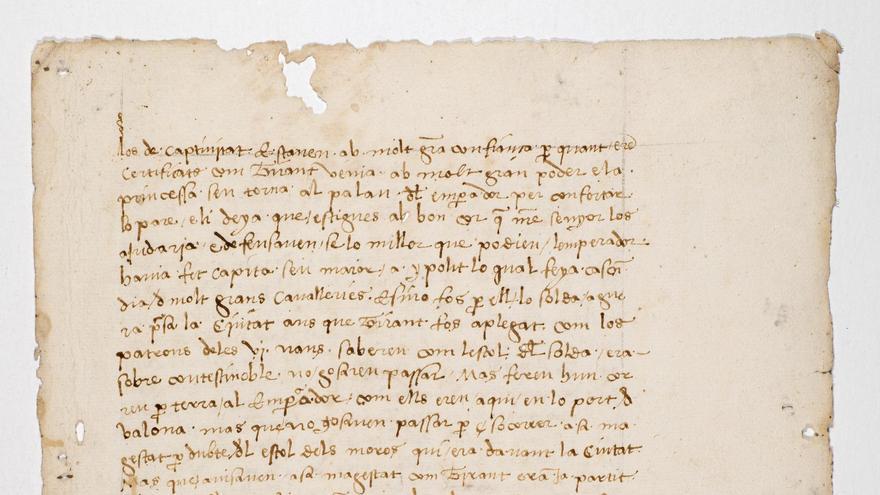 los de captiuitat · Estauen · ab · molt grā confiança · ꝑ quant · erē
Certificats com Tirant venia · ab molt gran poder e la ·
princessa · sen torna · al palau · dl' emꝑador per confortar
lo pare · e li deya · que / estigues ab bon cor q̄ nr̄e senyor los
aiudaria · e defensauen · se lo millor que podien / lemperador
hauia fet capita · seu maior / a · ypolit lo qual feya cascū
dia / d molt grans Caualleries · E si no fos ꝑ ell / lo solda / ague
ra p̄sa la Ciutat ans que Tirant fos aplegat · com los
patrons de les · vj · naus · saberen com lestol · dl' solda / era
sobre contestinoble · no / gosaren passar · Mas feren hun cor
reu ꝑ terra / al Emꝑador / com ells eren aqui / en lo port d
valona · mas que no gosauen · passar ꝑ socorrer · a sa ma
gestat ꝑ dubte / dl estol dels moros qui / era dauant la Ciutat
Mas que auisauen · a sa magestat com Tirant era ia partit